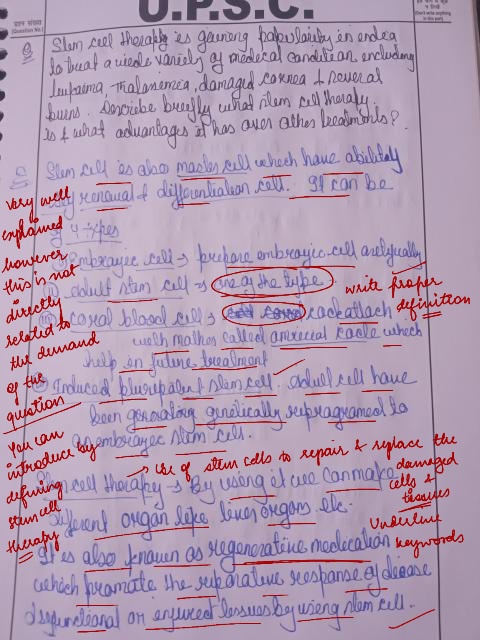 U.P.S.C.
(Question No.)
(Don't write anything in this part)
Q Stem cell therapy is gaining popularity in India
to treat a wide variety of medical condition including
leukaemia, Thalassemia, damaged cornea & several
burns. Describe briefly what stem cell therapy
is & what advantages it has over other treatments?
Stem cell is also master cell which have ability
renewal & differentiation cell. It can be
of 4 types
Embrayeic cell → prepare embrayeic cell
(ii) adult stem cell → one of the type
(iii) coral blood cell → attach
with mother called which
help in future treatment
Induced pluripotent stem cell. Adult cell have
been genetically reprogramed to
an embrayeic stem cell.
Stem cell therapy → By using it we can make
different organ like liver organs. etc.
It is also known as regenerative medication
which promate the reparative response of disease
dysfunctional or injured tissues by using stem cell.
very well
explained
however
this is not
directly
related to
the demand
of the
question
You can
introduce by
defining
stem cell
therapy
write proper
definition
→ Use of stem cells to repair & replace the
damaged
cells &
tissues
Underline
keywords